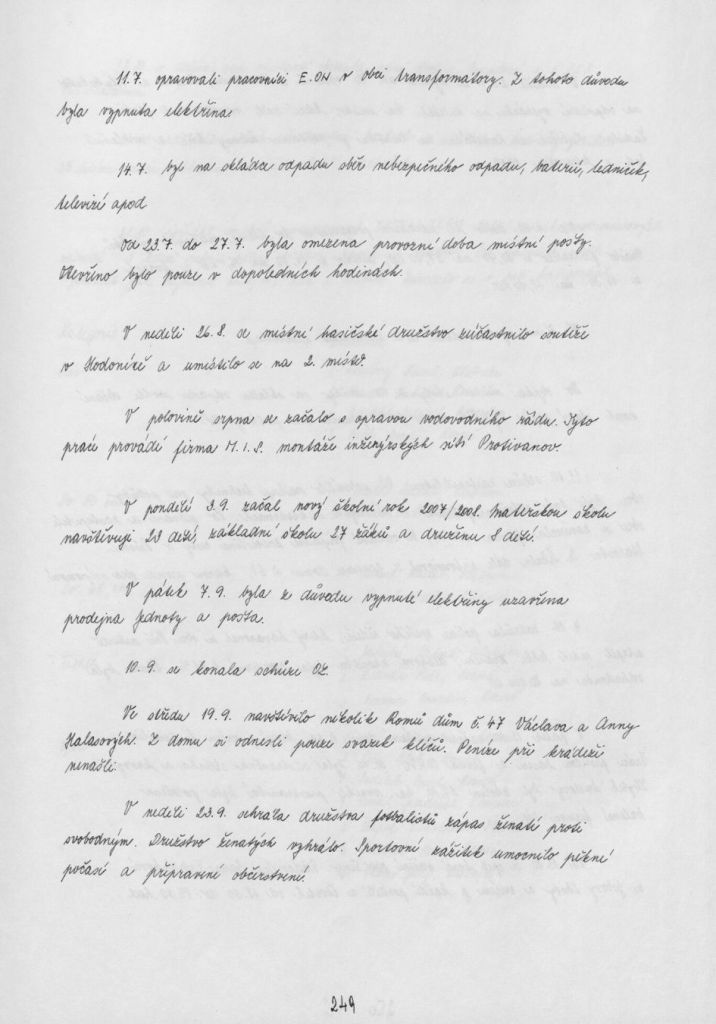 11.7. opravovali pracovníci E.ON v obci transformátory. Z tohoto důvodu
byla vypnuta elektřina.
14.7. byl na skládce odpadu sběr nebezpečného odpadu, baterií, ledniček,
televizí apod
Od 23.7. do 27.7. byla omezena provozní doba místní pošty.
Otevřeno bylo pouze v dopoledních hodinách.
V neděli 26.8. se místní hasičské družstvo zúčastnilo soutěže
v Hodoníně a umístilo se na 2. místě.
V polovině srpna se začalo s opravou vodovodního řádu. Tyto
práce provádí firma M.I.S. montáže inženýrských sítí Protivanov.
V pondělí 3.9. začal nový školní rok 2007/2008. Mateřskou školu
navštěvují 23 dětí, základní školu 27 žáků a družinu 8 dětí.
V pátek 7.9. byla z důvodu vypnutí elektřiny uzavřena
prodejna Jednoty a pošta.
10.9. se konala schůze OZ.
Ve středu 19.9. navštívilo několik Romů dům č. 47 Václava a Anny
Halasových. Z domu si odnesli pouze svazek klíčů. Peníze při krádeži
nenašli.
V neděli 23.9. sehrála družstva fotbalistů zápas ženatí proti
svobodným. Družstvo ženatých vyhrálo. Sportovní zážitek umocnilo pěkné
počasí a připravené občerstvení.
249